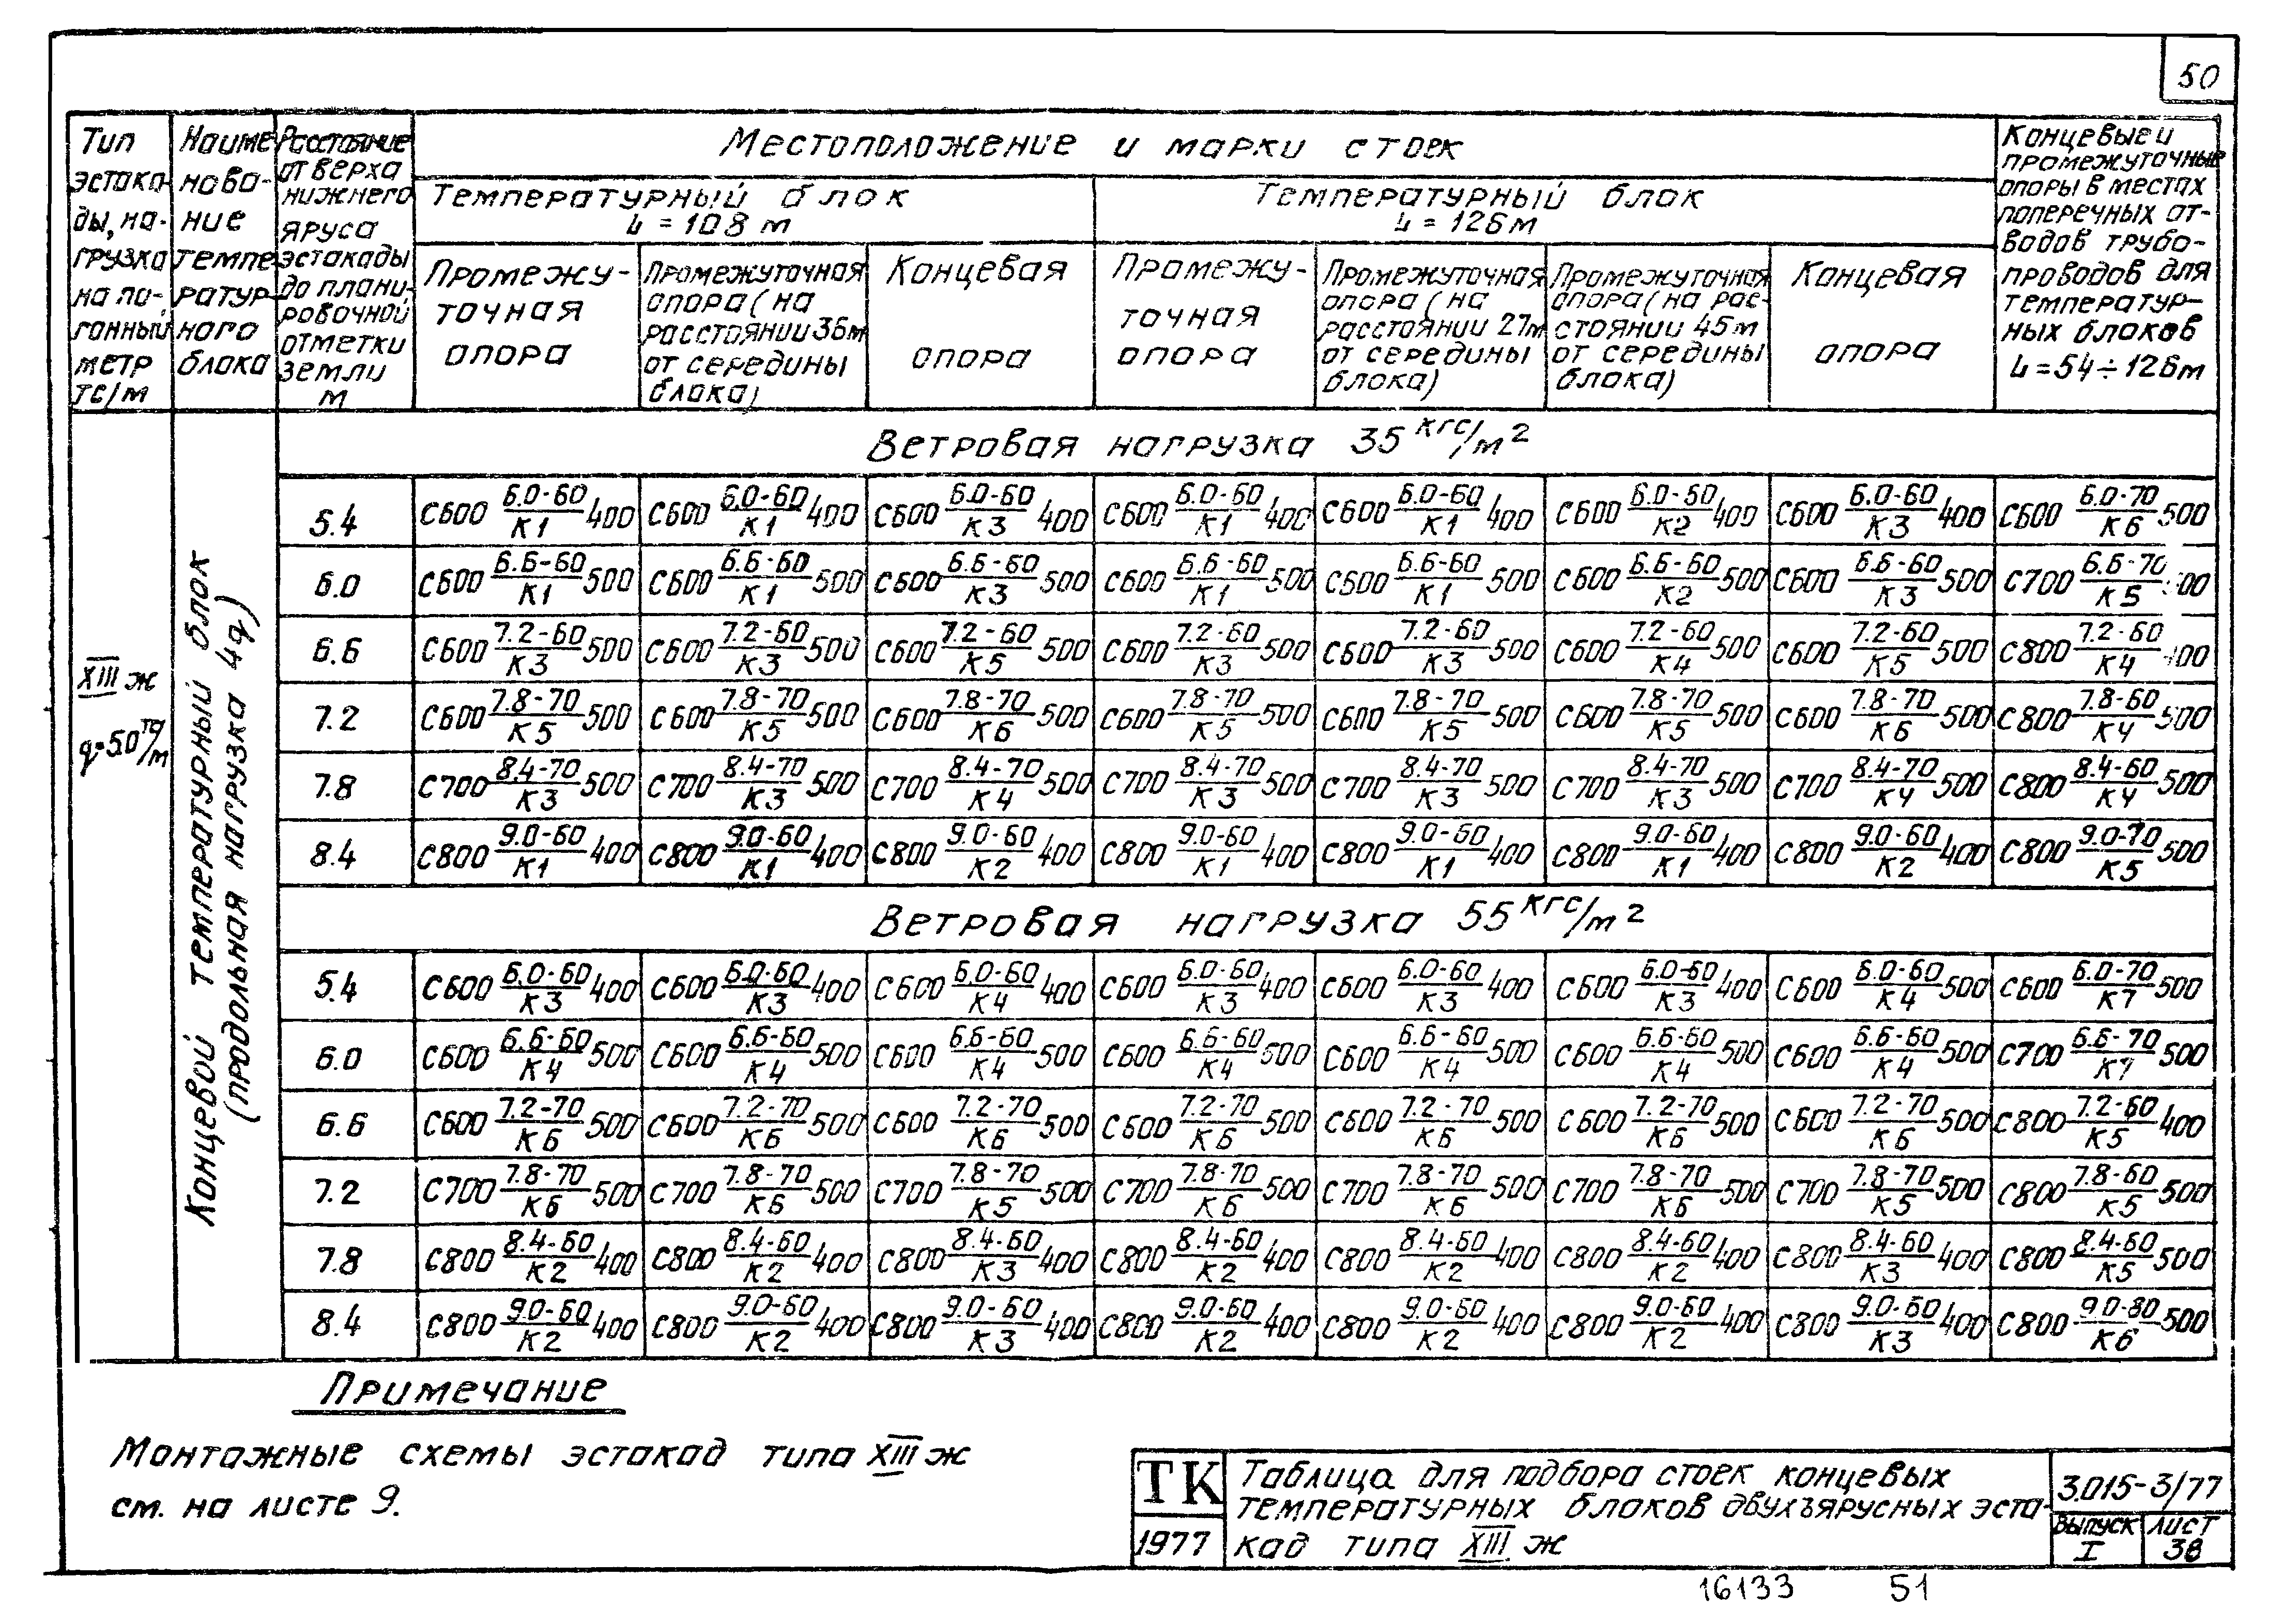 50
Тип эстакады, нагрузка на погонный метр тс/м
Наименование температурного блока
Расстояние от верха нижнего яруса эстакады до планировочной отметки земли м
Местоположение и марки стоек
Температурный блок L = 108 м
Температурный блок L = 126 м
Концевые и промежуточные опоры в местах поперечных отводов трубопроводов для температурных блоков L = 54 ÷ 126 м
Промежуточная опора
Промежуточная опора (на расстоянии 36м от середины блока)
Концевая опора
Промежуточная опора
Промежуточная опора (на расстоянии 27м от середины блока)
Промежуточная опора (на расстоянии 45м от середины блока)
Концевая опора
XIII ж
q=5.0 тс/м
Концевой температурный блок (продольная нагрузка 4q)
Ветровая нагрузка 35 кгс/м²
5.4 С600 6.0-60/К1 400 С600 6.0-60/К1 400 С600 6.0-60/К3 400 С600 6.0-60/К1 400 С600 6.0-60/К1 400 С600 6.0-60/К2 400 С600 6.0-60/К3 400 С600 6.0-70/К6 500
6.0 С600 6.6-60/К1 500 С600 6.6-60/К1 500 С600 6.6-60/К3 500 С600 6.6-60/К1 500 С600 6.6-60/К1 500 С600 6.6-60/К2 500 С600 6.6-60/К3 500 С700 6.6-70/К5
6.6 С600 7.2-60/К3 500 С600 7.2-60/К3 500 С600 7.2-60/К5 500 С600 7.2-60/К3 500 С600 7.2-60/К3 500 С600 7.2-60/К4 500 С600 7.2-60/К5 500 С800 7.2-60/К4 400
7.2 С600 7.8-70/К5 500 С600 7.8-70/К5 500 С600 7.8-70/К6 500 С600 7.8-70/К5 500 С600 7.8-70/К5 500 С600 7.8-70/К5 500 С600 7.8-70/К6 500 С800 7.8-60/К4 500
7.8 С700 8.4-70/К3 500 С700 8.4-70/К3 500 С700 8.4-70/К4 500 С700 8.4-70/К3 500 С700 8.4-70/К3 500 С700 8.4-70/К3 500 С700 8.4-70/К4 500 С800 8.4-60/К4 500
8.4 С800 9.0-60/К1 400 С800 9.0-60/К1 400 С800 9.0-60/К2 400 С800 9.0-60/К1 400 С800 9.0-60/К1 400 С800 9.0-60/К1 400 С800 9.0-60/К2 400 С800 9.0-70/К5 500
Ветровая нагрузка 55 кгс/м²
5.4 С600 6.0-60/К3 400 С600 6.0-60/К3 400 С600 6.0-60/К4 400 С600 6.0-60/К3 400 С600 6.0-60/К3 400 С600 6.0-60/К3 400 С600 6.0-60/К4 500 С600 6.0-70/К7 500
6.0 С600 6.6-60/К4 500 С600 6.6-60/К4 500 С600 6.6-60/К4 500 С600 6.6-60/К4 500 С600 6.6-60/К4 500 С600 6.6-60/К4 500 С600 6.6-60/К4 500 С700 6.6-70/К7 500
6.6 С600 7.2-70/К6 500 С600 7.2-70/К6 500 С600 7.2-70/К6 500 С600 7.2-70/К6 500 С600 7.2-70/К6 500 С600 7.2-70/К6 500 С600 7.2-70/К6 500 С800 7.2-60/К5 400
7.2 С700 7.8-70/К6 500 С700 7.8-70/К6 500 С700 7.8-70/К5 500 С700 7.8-70/К6 500 С700 7.8-70/К6 500 С700 7.8-70/К6 500 С700 7.8-70/К5 500 С800 7.8-60/К5 500
7.8 С800 8.4-60/К2 400 С800 8.4-60/К2 400 С800 8.4-60/К3 400 С800 8.4-60/К2 400 С800 8.4-60/К2 400 С800 8.4-60/К2 400 С800 8.4-60/К3 400 С800 8.4-60/К5 500
8.4 С800 9.0-60/К2 400 С800 9.0-60/К2 400 С800 9.0-60/К3 400 С800 9.0-60/К2 400 С800 9.0-60/К2 400 С800 9.0-60/К2 400 С800 9.0-60/К3 400 С800 9.0-80/К6 500
Примечание
Монтажные схемы эстакад типа XIII ж
см. на листе 9.
ТК
1977
Таблица для подбора стоек концевых
температурных блоков двухъярусных эста-
кад типа XIII ж
3.015-3/77
Выпуск I
Лист 38
16133 51